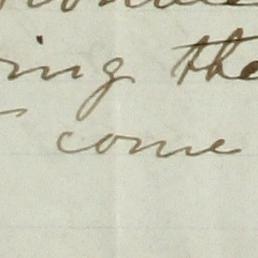 ing the
come